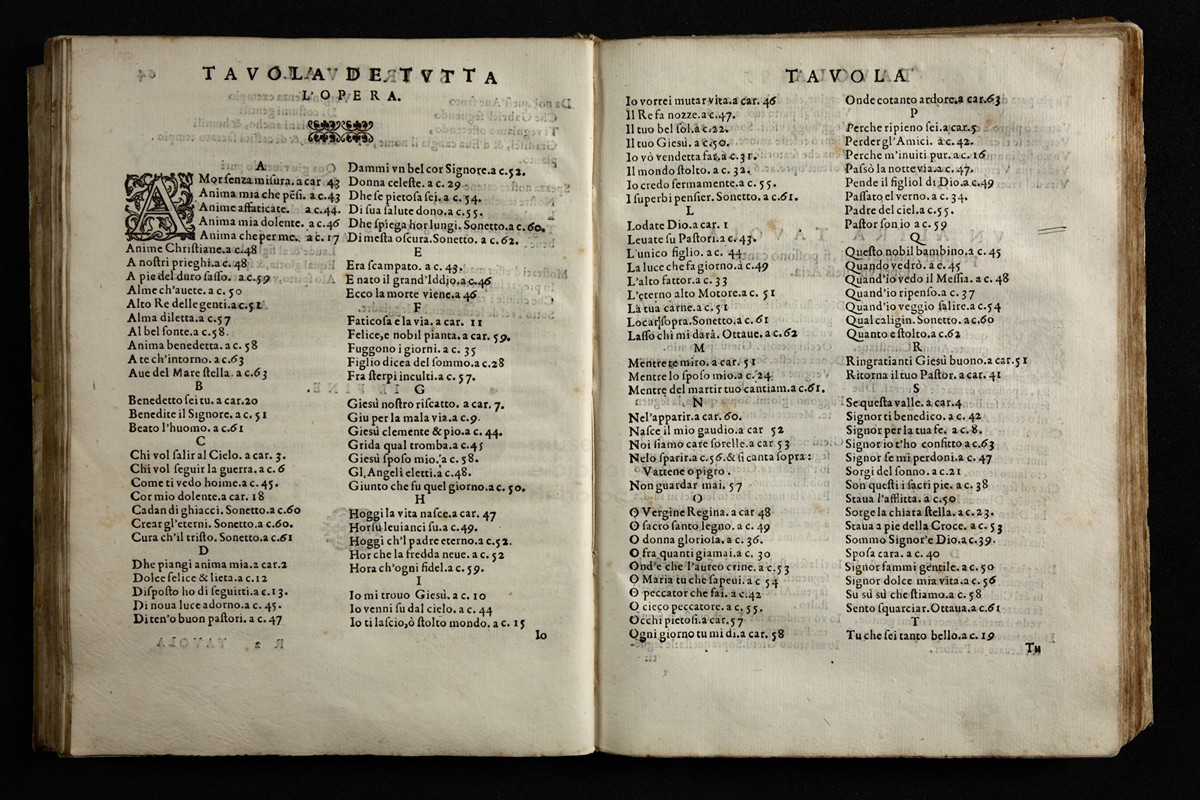 TAVOLA DE TVTTA
L'OPERA.
A
AMor senza misura. a car 43
Anima mia che pēsi. a c.43
Anime affaticate. a c.44.
Anima mia dolente. a c.46
Anima che per me. a c. 17
Anime Christiane. a c.48
A nostri prieghi. a c. 48
A pie del duro sasso. a c.59
Alme ch'auete. a c. 50
Alto Re delle genti. a c.51
Alma diletta. a c.57
Al bel fonte. a c.58.
Anima benedetta. a c. 58
A te ch'intorno. a c.63
Aue del Mare stella. a c.63
B
Benedetto sei tu. a car.20
Benedite il Signore. a c. 51
Beato l'huomo. a c.61
C
Chi vol salir al Cielo. a car. 3.
Chi vol seguir la guerra. a c.6
Come ti vedo hoime. a c.45.
Cor mio dolente. a car. 18
Cadan di ghiacci. Sonetto. a c.60
Crear gl'eterni. Sonetto. a c.60.
Cura ch'il tristo. Sonetto. a c.61
D
Dhe piangi anima mia. a car.2
Dolce felice & lieta. a c.12
Disposto ho di seguirti. a c.13.
Di noua luce adorno. a c. 45.
Di ten'o buon pastori. a c. 47
Dammi vn bel cor Signore. a c.52.
Donna celeste. a c. 29
Dhe se pietosa sei. a c. 54.
Di sua salute dono. a c.55.
Dhe spiega hor lungi. Sonetto. a c.60.
Di mesta oscura. Sonetto. a c. 62.
E
Era scampato. a c. 43.
E nato il grand'Iddio. a c.46
Ecco la morte viene. a 46
F
Faticosa e la via. a car. 11
Felice, e nobil pianta. a car. 59.
Fuggono i giorni. a c. 35
Figlio dicea del sommo. a c.28
Fra sterpi inculti. a c. 57.
G
Giesù nostro riscatto. a car. 7.
Giu per la mala via. a c.9.
Giesù clemente & pio. a c. 44.
Grida qual tromba. a c.45
Giesù sposo mio. a c. 58.
Gl' Angeli eletti. a c.48.
Giunto che fu quel giorno. a c. 50.
H
Hoggi la vita nasce. a car. 47
Horsù leuianci su. a c.49.
Hoggi ch'l padre eterno. a c.52.
Hor che la fredda neue. a c. 52
Hora ch'ogni fidel. a c. 59.
I
Io mi trouo Giesù. a c. 10
Io venni su dal cielo. a c. 44
Io ti lascio, ò stolto mondo. a c. 15
Io
TAVOLA
Io vorrei mutar vita. a car. 46
Il Re fa nozze. a c.47.
Il tuo bel sol. a c.22.
Il tuo Giesù. a c.50.
Io vò vendetta far. a c.31.
Il mondo stolto. a c. 32.
Io credo fermamente. a c. 55.
I superbi pensier. Sonetto. a c.61.
L
Lodate Dio. a car. 1
Leuate su Pastori. a c.43.
L'unico figlio. a c. 44
La luce che fa giorno. a c.49
L'alto fattor. a c.33
L'eterno alto Motore. a c. 51
La tua carne. a c.51
Locar sopra. Sonetto. a c.61
Lasso chi mi darà. Ottaue. a c.62
M
Mentre te miro. a car. 51
Mentre lo sposo mio. a c. 24
Mentre del martir tuo cantiam. a c.61.
N
Nel'apparir. a car. 60.
Nasce il mio gaudio. a car 52
Noi siamo care sorelle. a car 53
Nelo sparir. a c.56. & si canta sopra:
Vattene o pigro.
Non guardar mai. 57
O
O Vergine Regina. a car 48
O sacro santo legno. a c. 49
O donna gloriosa. a c. 36.
O fra quanti giamai. a c. 30
Ond'e che l'aureo crine. a c.53
O Maria tu che sapeui. a c 54
O peccator che fai. a c.42
O cieco peccatore. a c. 55.
Occhi pietosi. a car.57
Ogni giorno tu mi di. a car. 58
Onde cotanto ardore. a car.63
P
Perche ripieno sei. a car.5
Perder gl'Amici. a c. 42.
Perche m'inuiti pur. a c. 16
Passò la notte via. a c. 47.
Pende il figliol di Dio. a c.49
Passato el verno. a c. 34.
Padre del ciel. a c.55.
Pastor son io a c. 59
Q
Questo nobil bambino. a c. 45
Quando vedrò. a c. 45
Quand'io vedo il Messia. a c. 48
Quand'io ripenso. a c. 37
Quand'io veggio salire. a c.54
Qual caligin. Sonetto. a c.60
Quanto e stolto. a c.62
R
Ringratianti Giesù buono. a car.51
Ritorna il tuo Pastor. a car. 41
S
Se questa valle. a car.4
Signor ti benedico. a c. 42
Signor per la tua fe. a c. 8.
Signor io t'ho confitto a c.63
Signor se mi perdoni. a c. 47
Sorgi del sonno. a c.21
Son questi i sacri pie. a c. 38
Staua l'afflitta. a c.50
Sorge la chiara stella. a c.23.
Staua a pie della Croce. a c. 53
Sommo Signor'e Dio. a c.39.
Sposa cara. a c. 40
Signor fammi gentile. a c. 50
Signor dolce mia vita. a c.56
Su sù sù che stiamo. a c. 58
Sento squarciar. Ottaua. a c.61
T
Tu che sei tanto bello. a c. 19
Tu